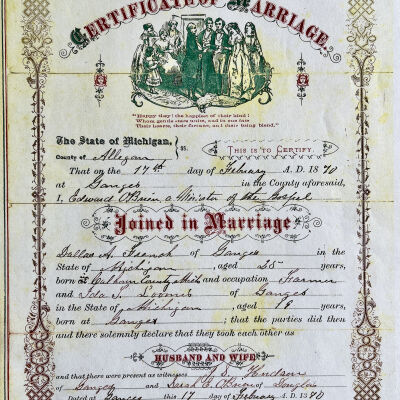 CERTIFICATE OF MARRIAGE.
"Happy they! the happiest of their kind!
Whom gentle stars unite, and in one fate
Their hearts, their fortunes, and their being blend."
The State of Michigan, } ss.
County of Allegan
THIS IS TO CERTIFY,
That on the 17th day of February A. D. 1870
at Ganges in the County aforesaid,
I, Edward O'Brien a Minister of the Gospel
Joined in Marriage
Dallas A. of Ganges in the
State of Michigan, aged 25 years,
born at Calhoun County Mich and occupation Farmer
and Ida Loomis of Ganges
in the State of Michigan, aged years,
born at Ganges ; that the parties did then
and there solemnly declare that they took each other as
HUSBAND AND WIFE;
and that there were present as witnesses
of Ganges and Sarah E. O'Brien of Douglas
Dated at Ganges this 17 day of February A. D. 1870